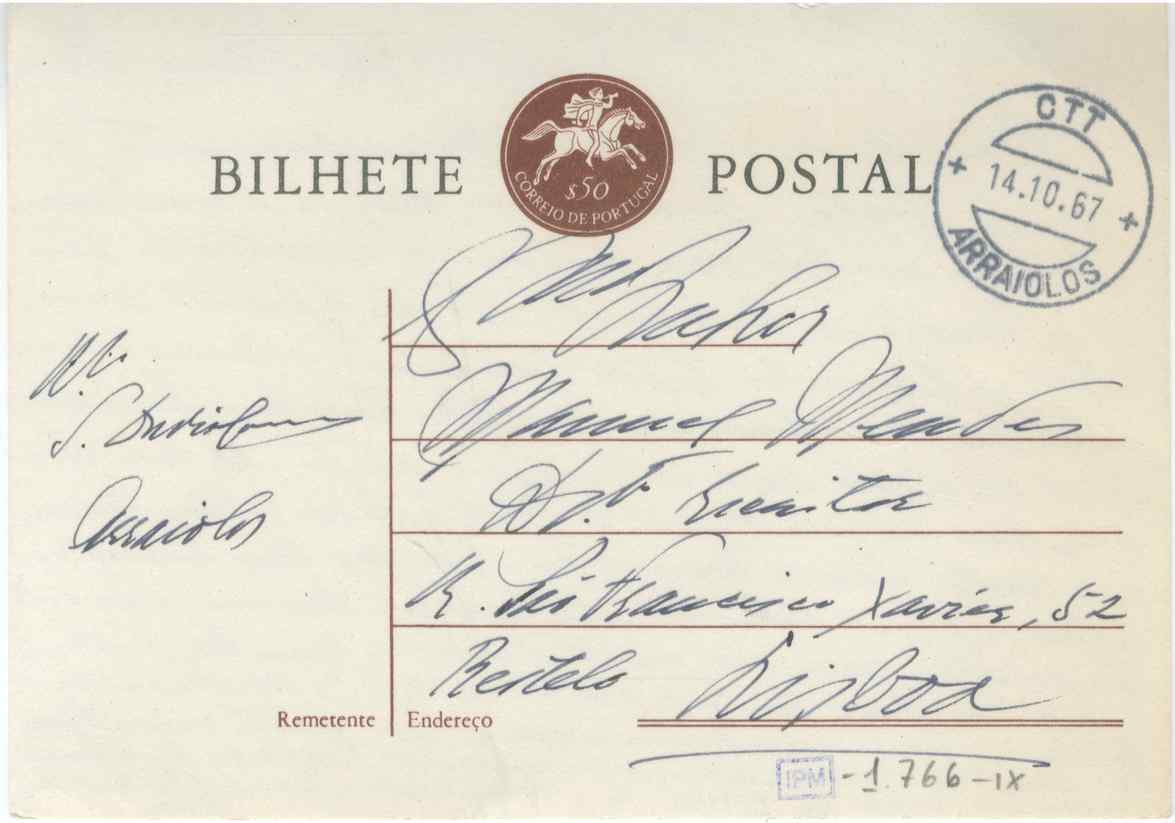 BILHETE POSTAL
$50
CORREIO DE PORTUGAL
CTT
14.10.67
ARRAIOLOS
Senhor
Manuel Mendes
Escritor
R. Francisco Xavier, 52
Restelo Lisboa
Arraiolos
Remetente
Endereço
IPM -1.766-IX